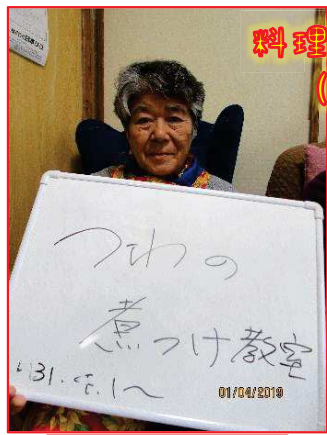 料理
つわの
煮つけ教室
H31.
01/04/2019